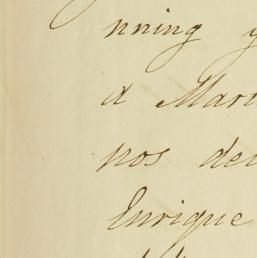 nning y
a Mari
nos de
Enrique